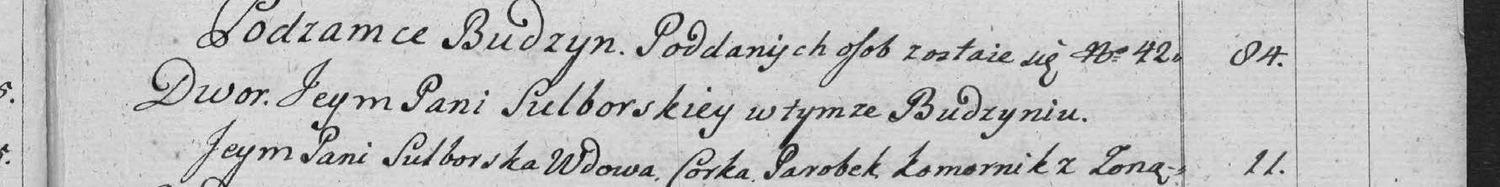 Podzamce Budzyn. Poddanych osob zostaie się No 42. 84.
Dwor. Jeym Pani Sulborskiey w tymze Budzyniu.
Jeym Pani Sulborska Wdowa, Corka, Parobek, komornik z Zoną. 11.
5.